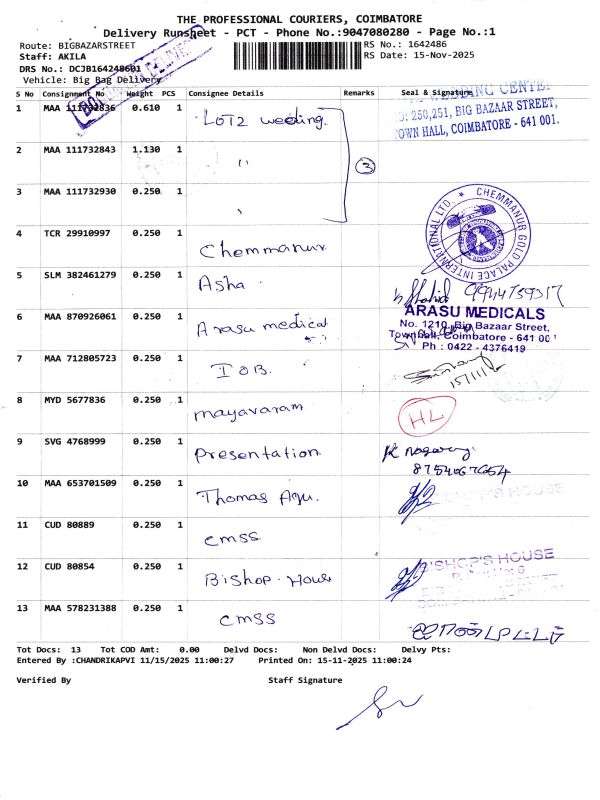 THE PROFESSIONAL COURIERS, COIMBATORE
Delivery Runsheet - PCT - Phone No.:9047080280 - Page No.:1
Route: BIGBAZARSTREET
RS No.: 1642486
Staff: AKILA
RS Date: 15-Nov-2025
DRS No.: DCJB164248601
Vehicle: Big Bag Delivery
S No Consignment No Weight PCS Consignee Details Remarks Seal & Signature
1 MAA 111732836 0.610 1 LOT2 wedding
WEDDING CENTER
250,251, BIG BAZAAR STREET,
TOWN HALL, COIMBATORE - 641 001.
2 MAA 111732843 1.130 1 "
3
3 MAA 111732930 0.250 1
4 TCR 29910997 0.250 1 Chemmanur
CHEMMANUR GOLD PALACE INTERNATIONAL LTD.
5 SLM 382461279 0.250 1 Asha
6 MAA 870926061 0.250 1 Arasu medical
ARASU MEDICALS
No. 1210, Big Bazaar Street,
Town Hall, Coimbatore - 641 001
Ph : 0422 - 4376419
7 MAA 712805723 0.250 1 IOB
8 MYD 5677836 0.250 1 mayavaram HL
9 SVG 4768999 0.250 1 Presentation
10 MAA 653701509 0.250 1 Thomas
BISHOP'S HOUSE
11 CUD 80889 0.250 1 cmss
12 CUD 80854 0.250 1 Bishop House
BISHOP'S HOUSE
13 MAA 578231388 0.250 1 cmss
Tot Docs: 13 Tot COD Amt: 0.00 Delvd Docs: Non Delvd Docs: Delvy Pts:
Entered By :CHANDRIKAPVI 11/15/2025 11:00:27 Printed On: 15-11-2025 11:00:24
Verified By Staff Signature